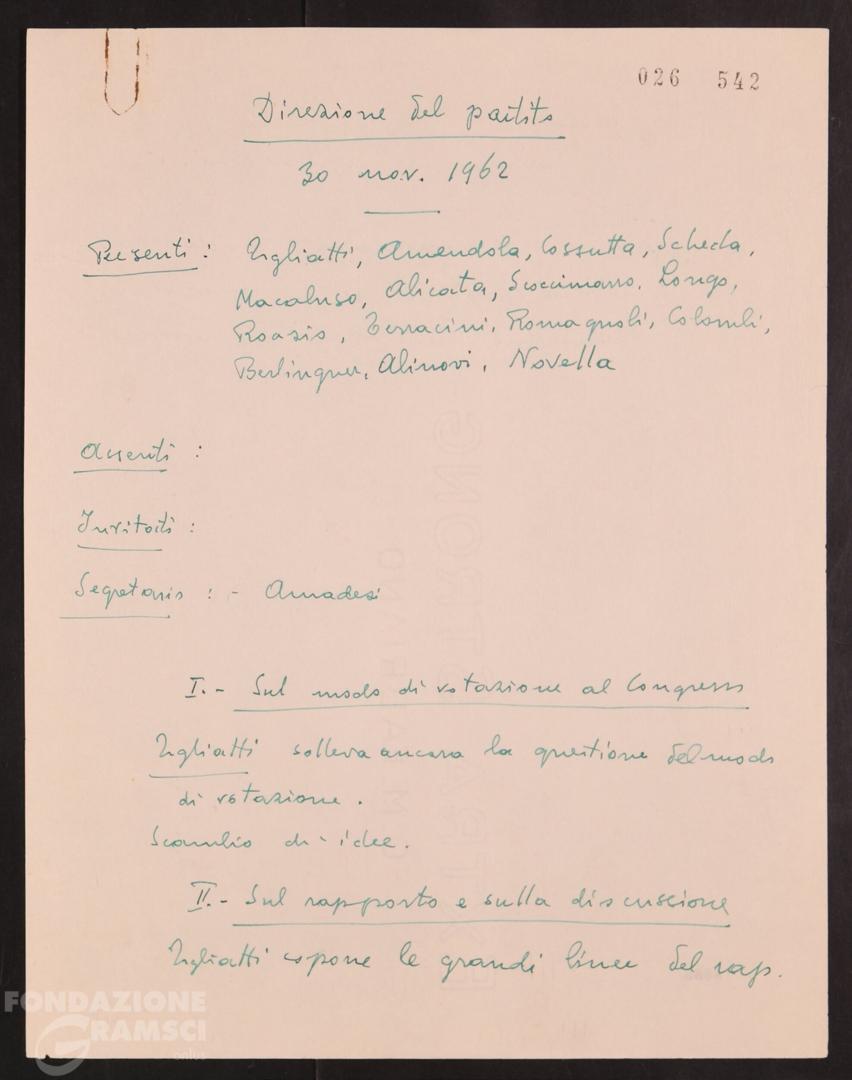 026 542
Direzione del partito
30 nov. 1962
Presenti : Togliatti, Amendola, Cossutta, Scheda,
Macaluso, Alicata, Scoccimarro, Longo,
Roasio, Terracini, Romagnoli, Colombi,
Berlinguer, Alinovi, Novella
Assenti :
Invitati :
Segretario : - Amadesi
I. - Sul modo di votazione al Congresso
Togliatti solleva ancora la questione del modo
di votazione.
Scambio di idee.
II. - Sul rapporto e sulla discussione
Togliatti espone le grandi linee del rap.
FONDAZIONE
GRAMSCI
onlus